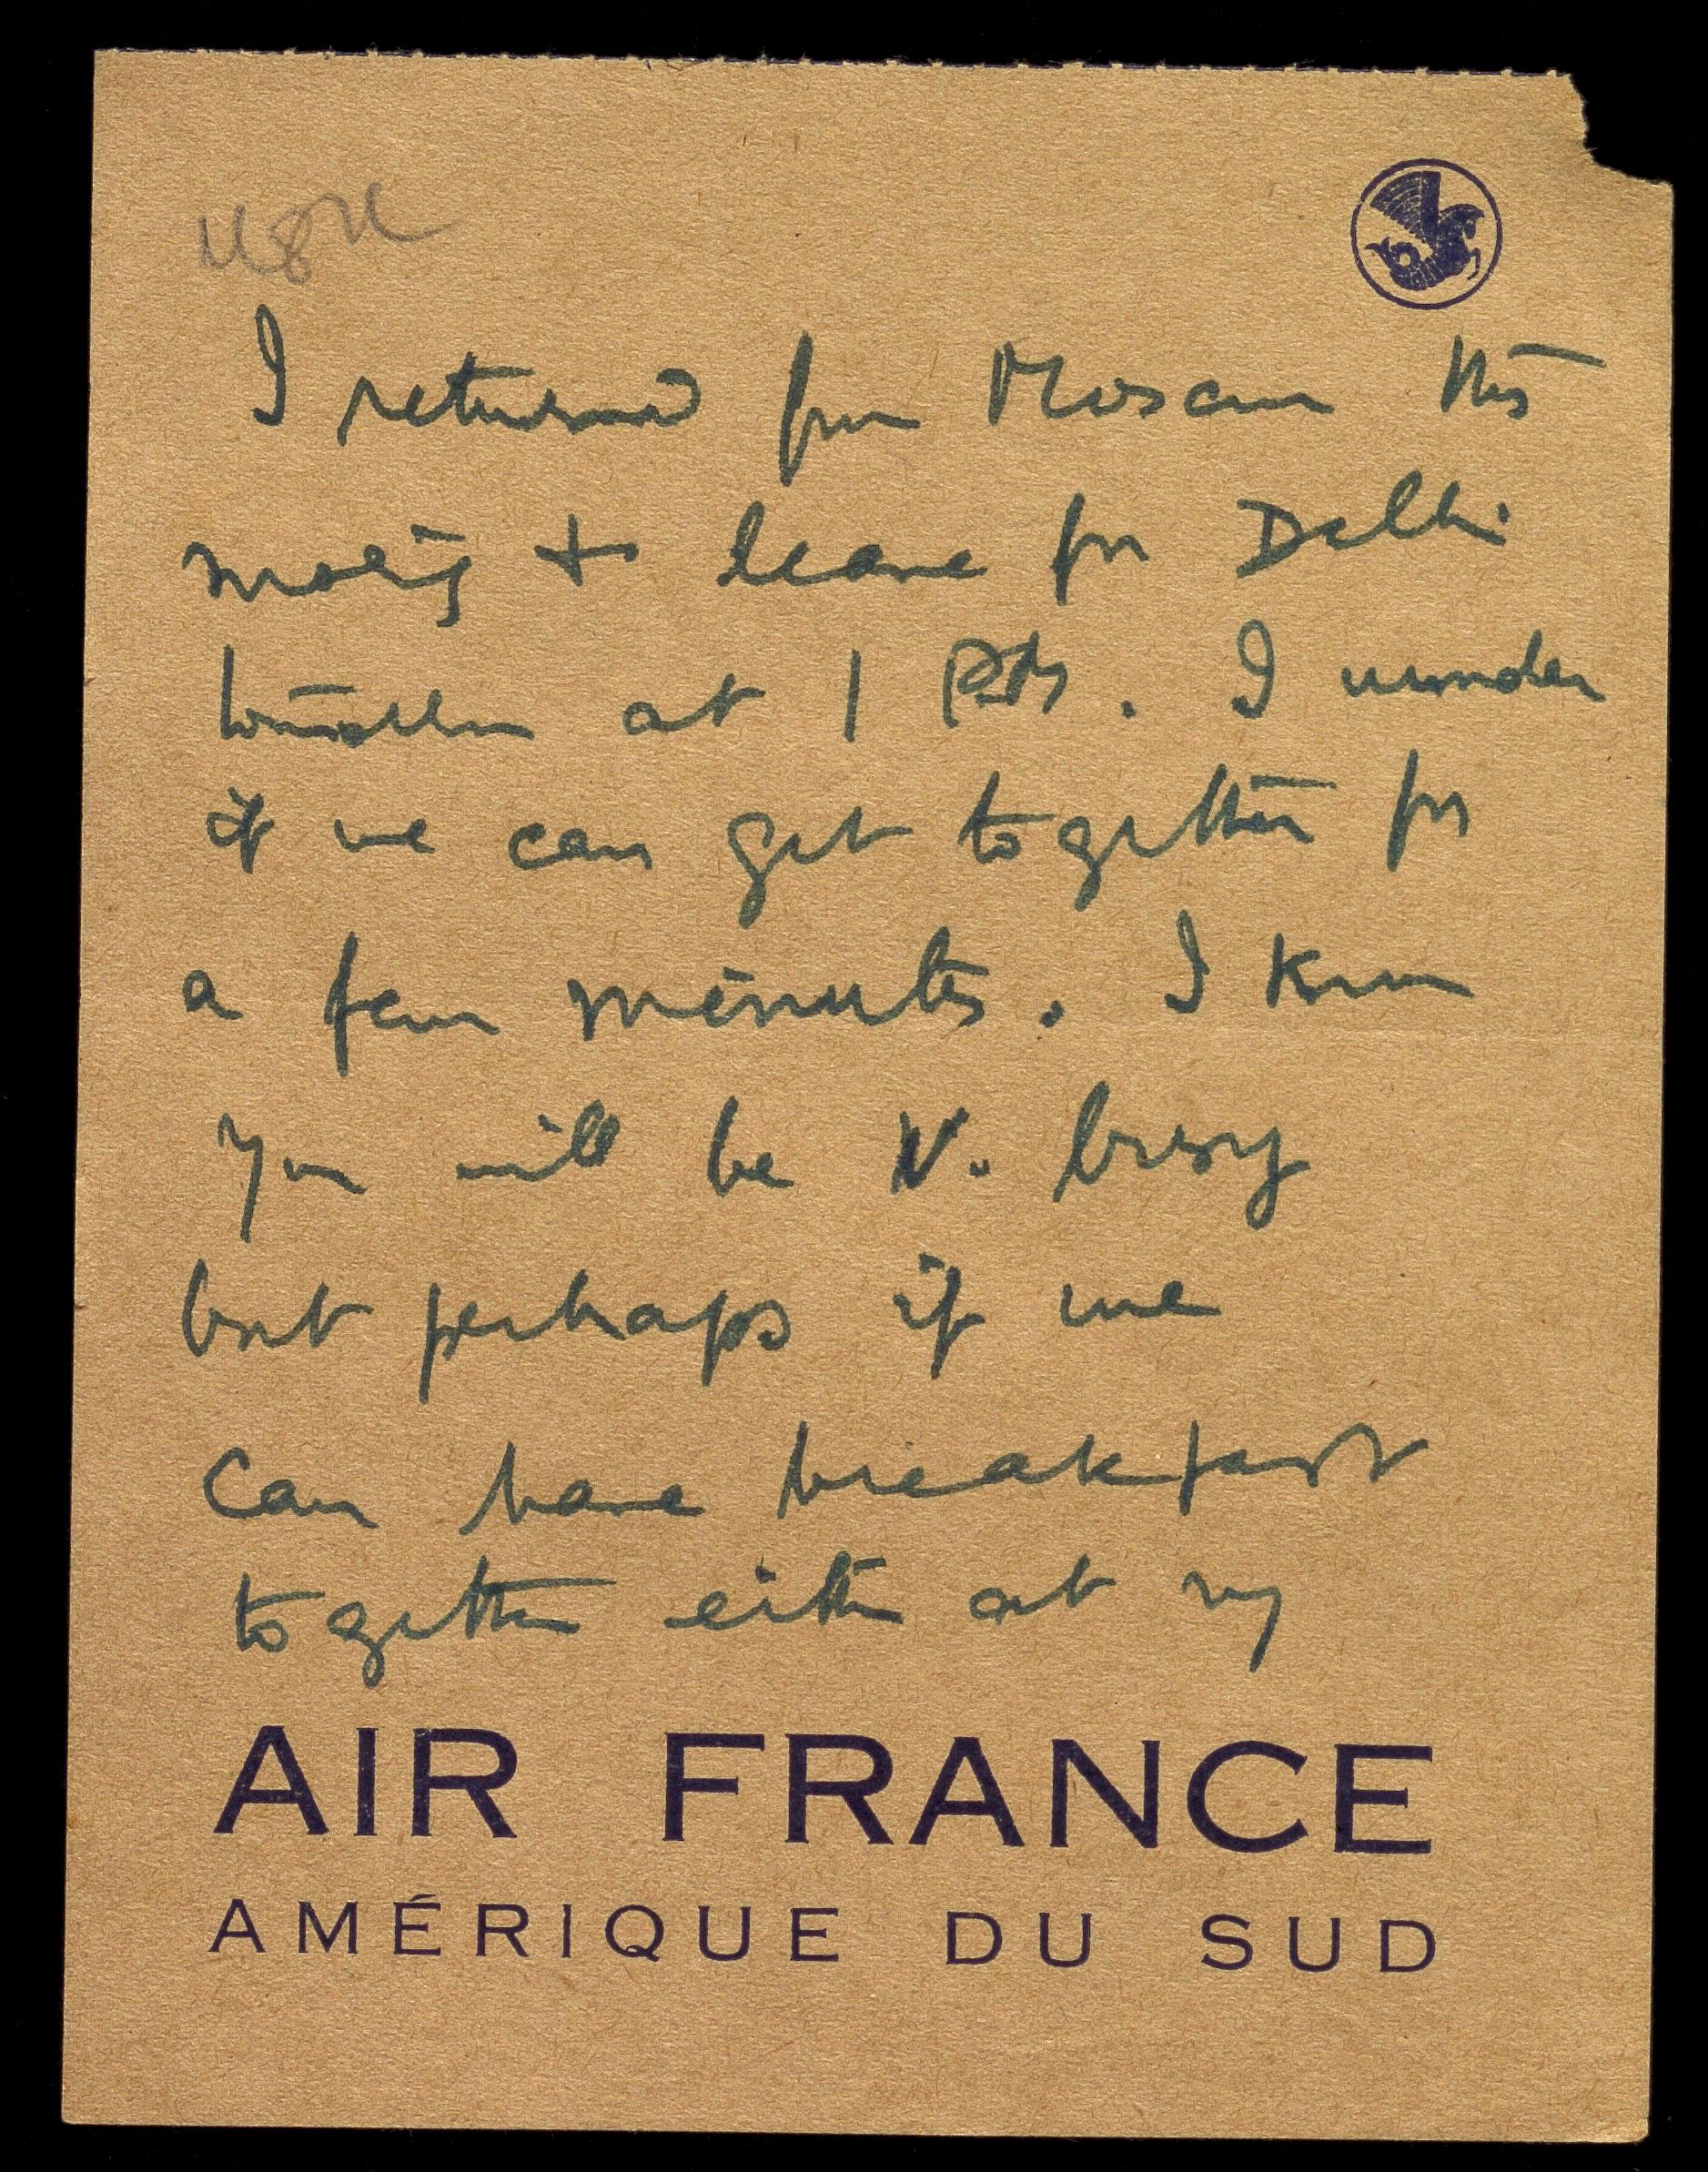 I returned from Moscow this
morning & leave for Delhi
tomorrow at 1 PM. I wonder
if we can get together for
a few minutes. I know
you will be V. busy
but perhaps if we
can have breakfast
together either at my
AIR FRANCE
AMÉRIQUE DU SUD